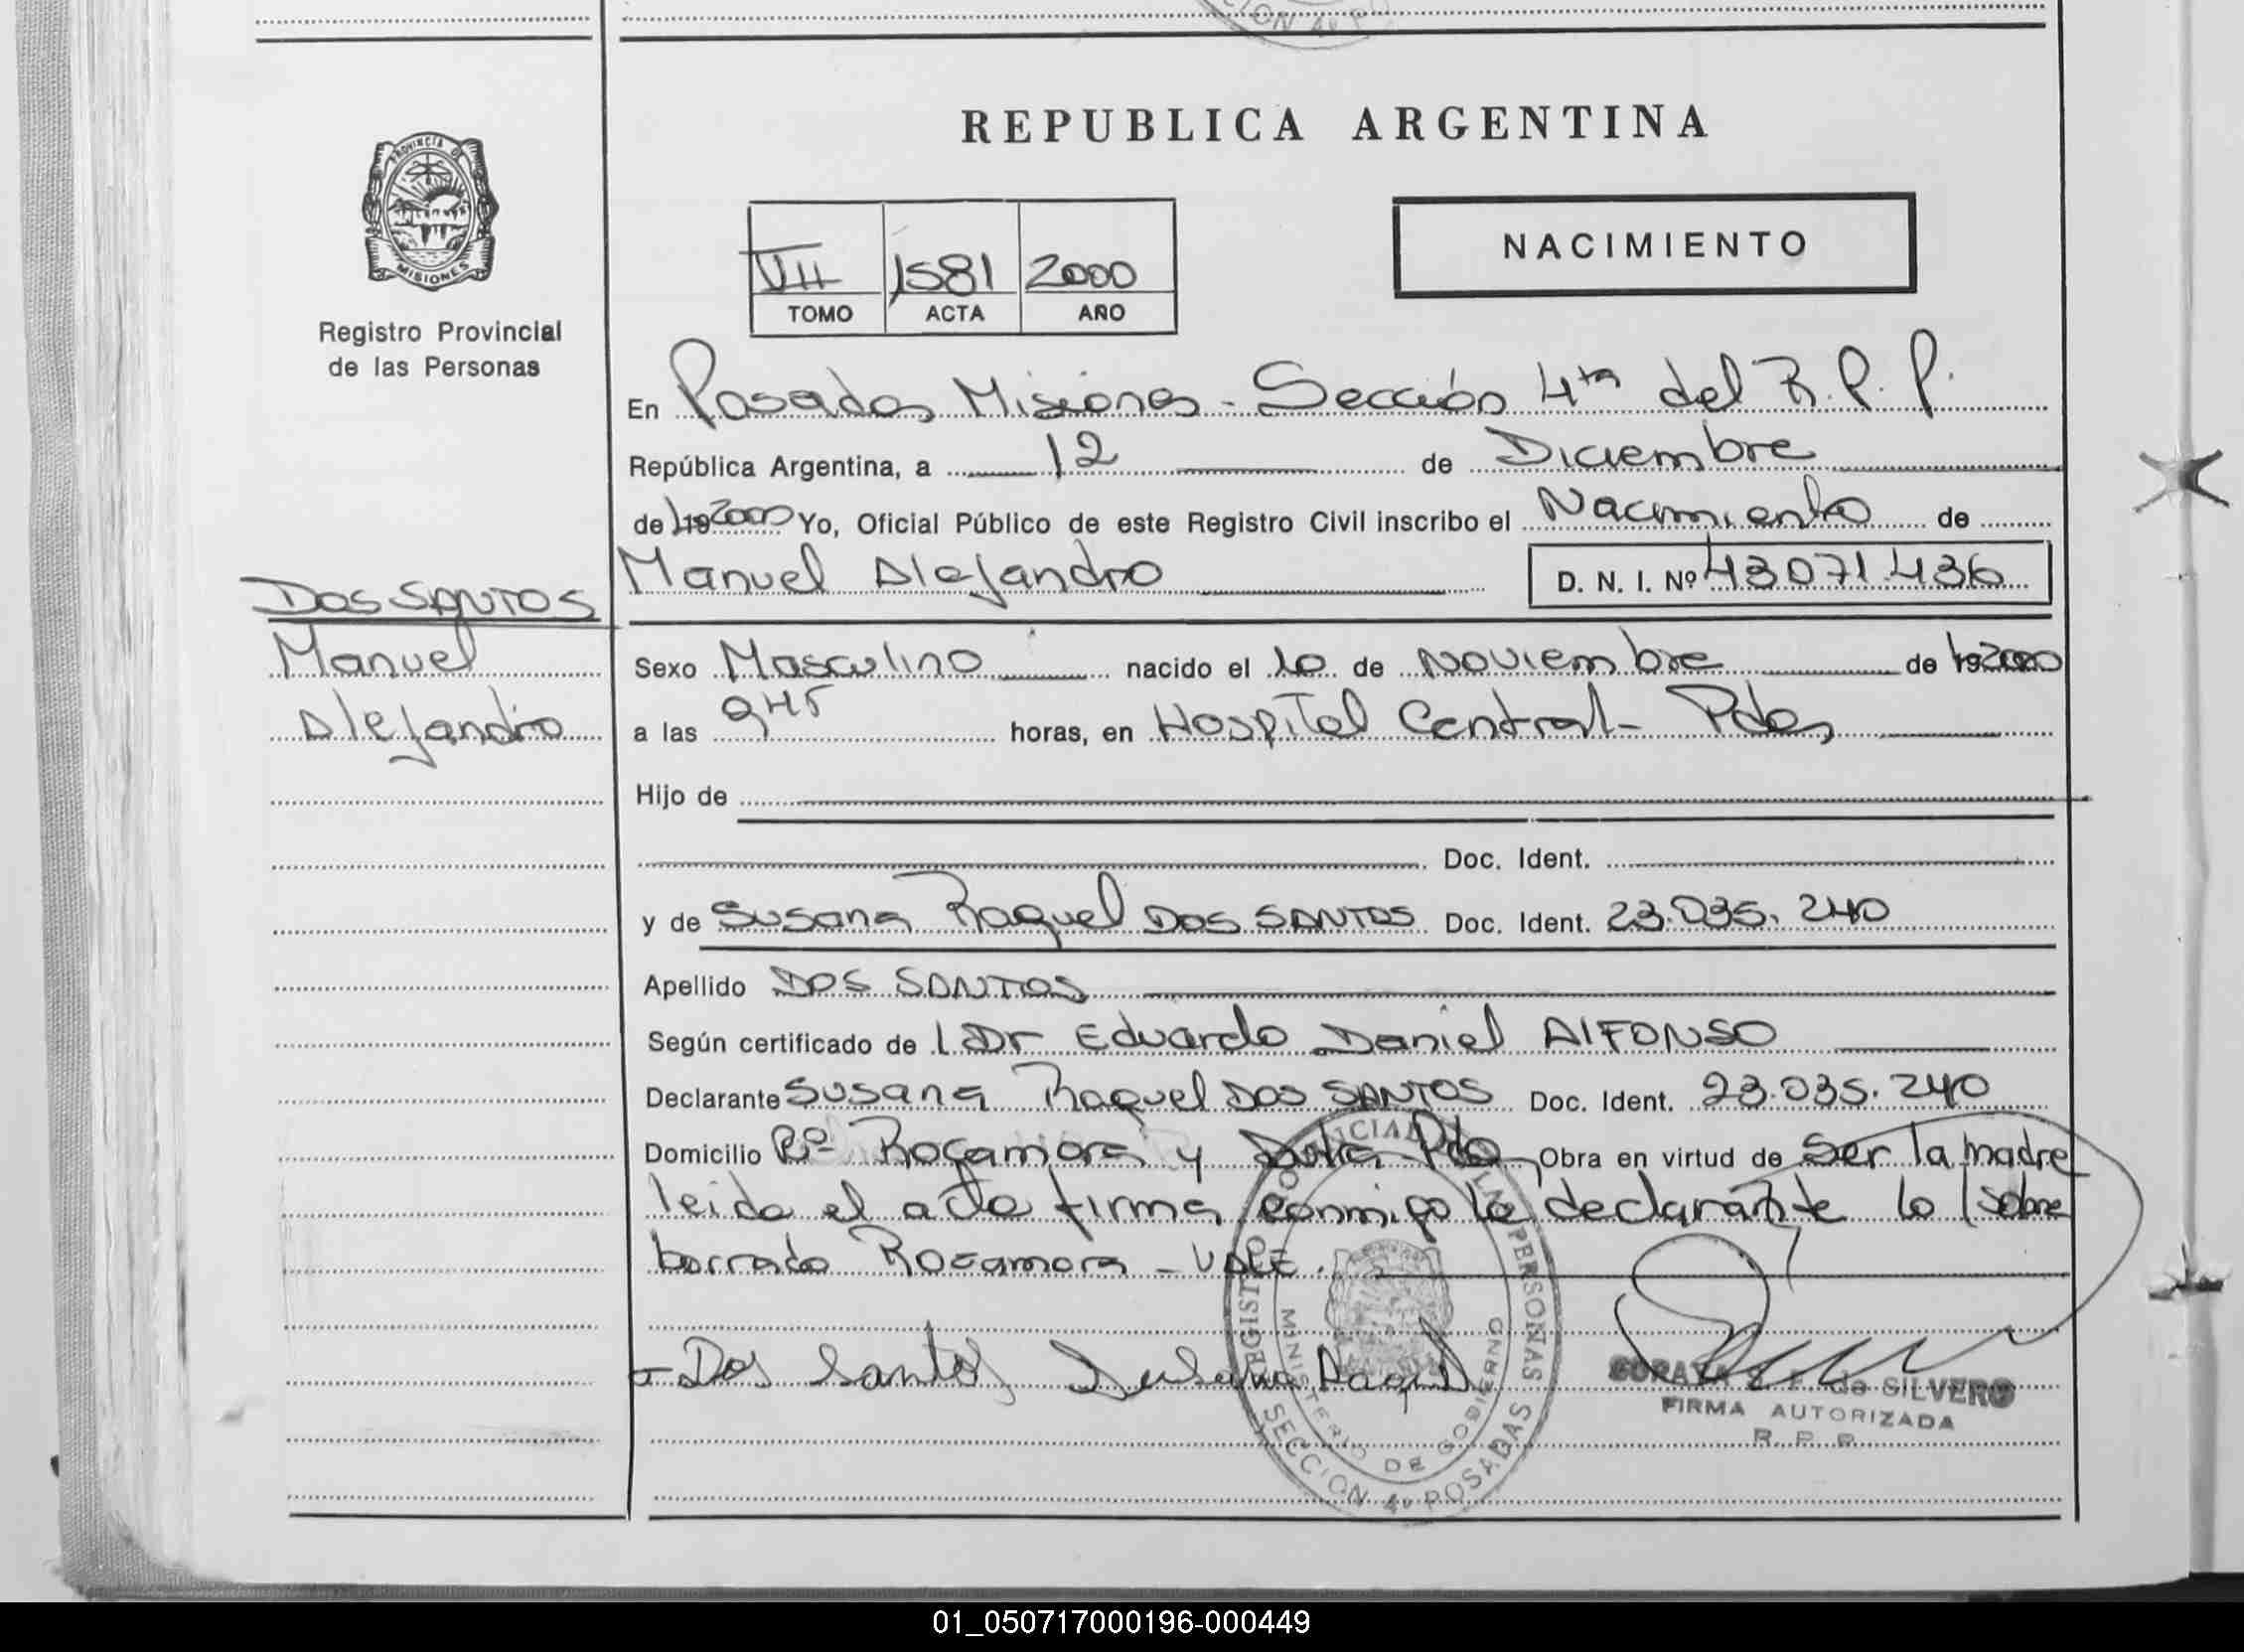 CION 4º PO
REPUBLICA ARGENTINA
PROVINCIA DE
MISIONES
Registro Provincial
de las Personas
VII 1581 2000
TOMO ACTA AÑO
NACIMIENTO
En Posadas Misiones - Sección 4ta del R.P.P.
República Argentina, a 12 de Diciembre
de 19 2000 Yo, Oficial Público de este Registro Civil inscribo el Nacimiento de
Manuel Alejandro D. N. I. Nº 43071436
DOS SANTOS
Manuel
Alejandro
Sexo Masculino nacido el 10 de Noviembre de 19 2000
a las 945 horas, en Hospital Central - Pdas
Hijo de
Doc. Ident.
y de Susana Raquel DOS SANTOS Doc. Ident. 23.035.240
Apellido DOS SANTOS
Según certificado de l Dr Eduardo Daniel ALFONSO
Declarante Susana Raquel DOS SANTOS Doc. Ident. 23.035.240
Domicilio Bº Rocamora y Obra en virtud de Ser la madre
leida el acta firma conmigo la declarante lo / sobre
borrado Rocamora - VALE.
Dos Santos Susana Raquel
SORAYA de SILVERO
FIRMA AUTORIZADA
R. P. P.
REGISTRO PROVINCIAL DE LAS PERSONAS
MINISTERIO DE GOBIERNO
SECCION 4º POSADAS
01_050717000196-000449